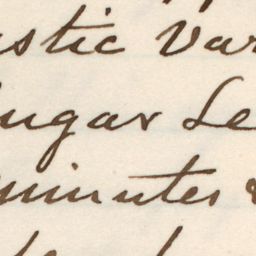 astic Var
Sugar Le
minutes &